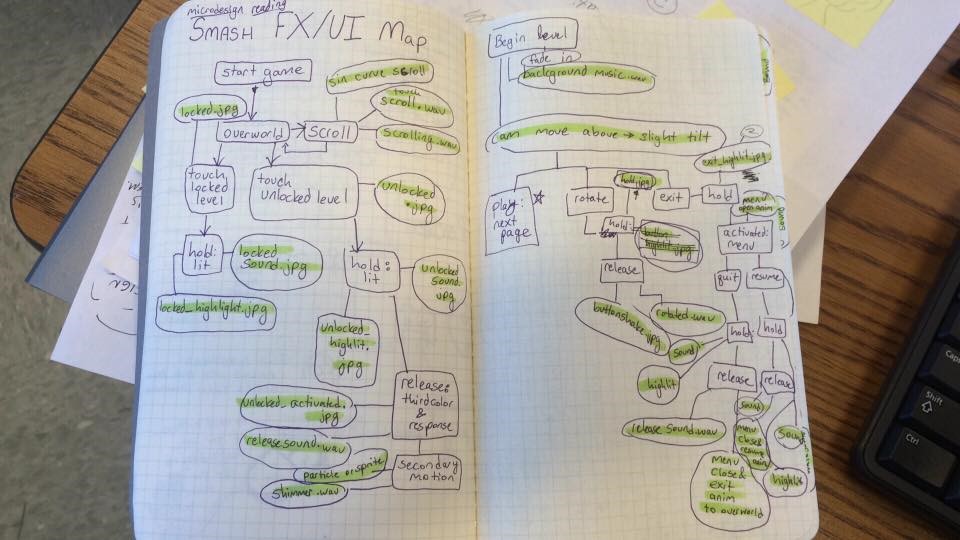 microdesign reading
SMASH FX/UI Map
start game
sin curve scroll
locked.jpg
touch
scroll.wav
overworld
scroll
scrolling.wav
touch
locked
level
touch
unlocked level
unlocked
.jpg
hold:
lit
locked
sound.jpg
hold:
lit
unlocked
sound.
jpg
locked_highlight.jpg
unlocked_
highlit.
jpg
release:
third color
&
response
unlocked_activated.
jpg
releasesound.wav
particle or sprite
secondary
motion
shimmer.wav
Begin level
fade in
background music.wav
can move above → slight tilt
exit_highlit.jpg
play:
next
page
rotate
hold.jpg
exit
hold
menu
open anim
hold:
button
highlit.jpg
activated:
menu
release
quit
resume
buttonshake.jpg
rotated.wav
hold:
hold
sound
highlit
release
release
release sound.wav
sound
menu
close &
resume
anim
sound
menu
close &
exit
anim
to overworld
highlit
Caps
Shift
Ctrl